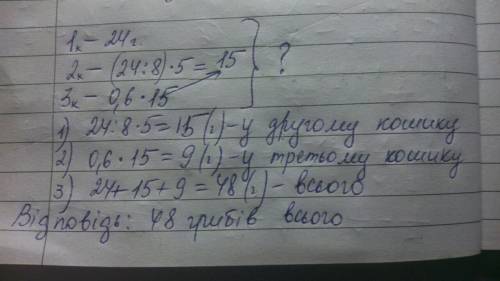 1к – 24г.
2к – (24:8)·5 = 15
3к – 0,6·15
?
1) 24:8·5=15(г) – у другому кошику
2) 0,6·15=9(г) – у третьому кошику
3) 24+15+9=48(г) – всього
Відповідь: 48 грибів всього